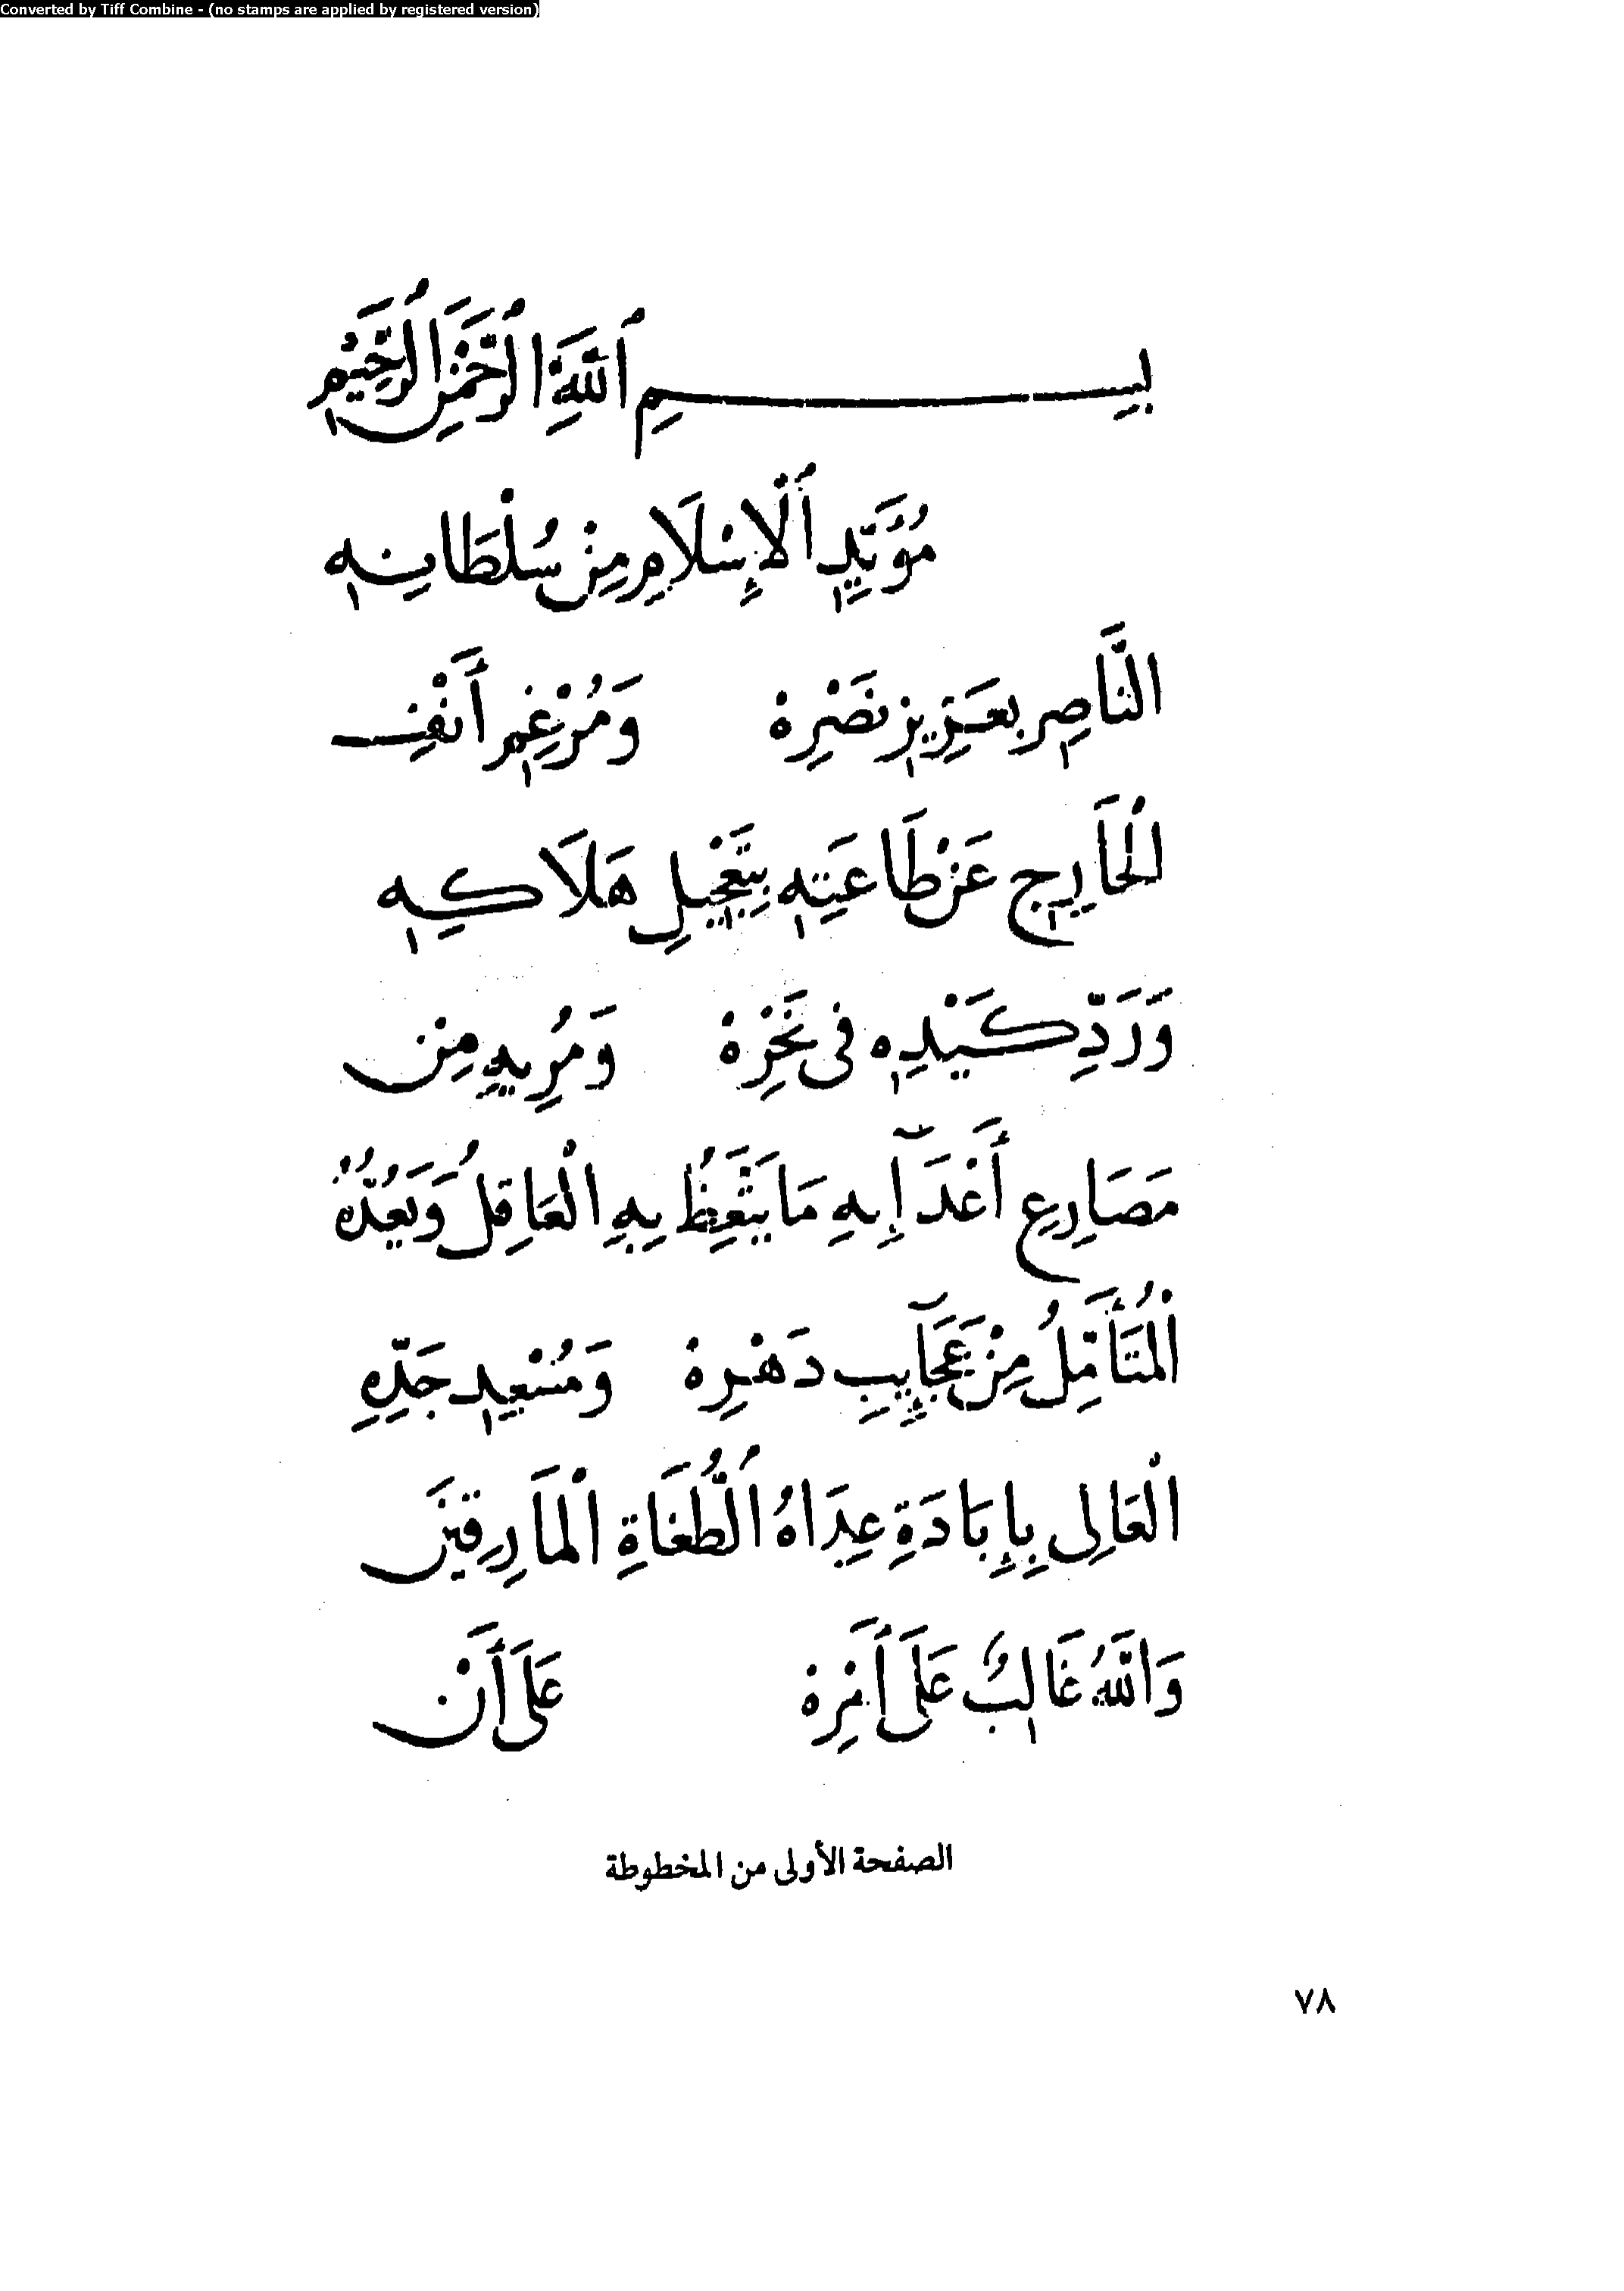 Converted by Tiff Combine - (no stamps are applied by registered version)
بِسمِ ٱللَّهِ ٱلرَّحْمَنِ ٱلرَّحِيمِ
مُؤَيِّدِ ٱلْإِسْلَامِ مِنْ سُلْطَانِهِ
النَّاصِرِ بِعَزِيزِ نَصْرِهْ وَمُرْغِمِ أَنْفِ
الْخَارِجِ عَنْ طَاعَتِهِ بِتَعْجِيلِ هَلَاكِهِ
وَرَدِّ كَيْدِهِ فى نَحْرِهْ وَمُرِيهِ مِنْ
مَصَارِعِ أَعْدَآإِيهِ مَا يَتَّعِظُ بِهِ الْعَاقِلُ وَيَعُدُّهُ
الْمُتَأَمِّلُ مِنْ عَجَآيِبِ دَهْرِهْ وَمُسْعِدِ جَدِّهِ
الْعَالِى بِإِبَادَةِ عِدَاهُ ٱلطُّغَاةِ الْمَارِقِينَ
وَاللَّهُ غَالِبٌ عَلَى أَمْرِهْ عَلَى أَنْ
الصفحة الأولى من المخطوطة
٧٨